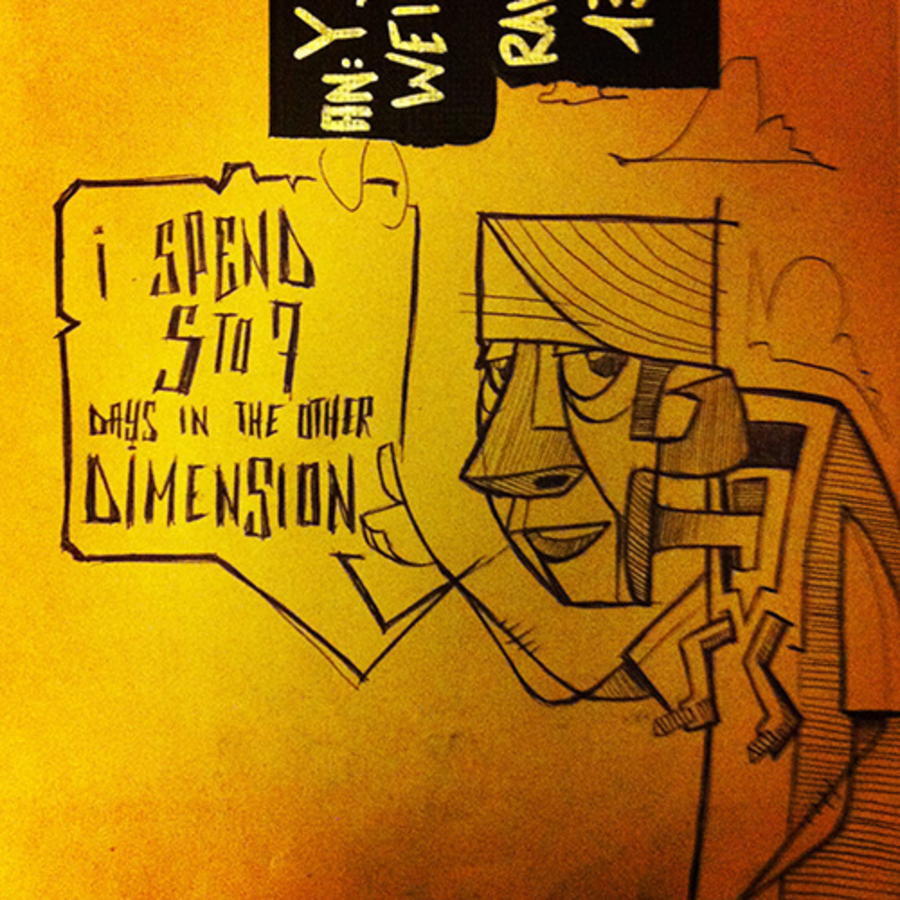 AN: Y
WEI
RAV
13
i SPEND
5 TO 7
DAYS IN THE OTHER
DiMENSION